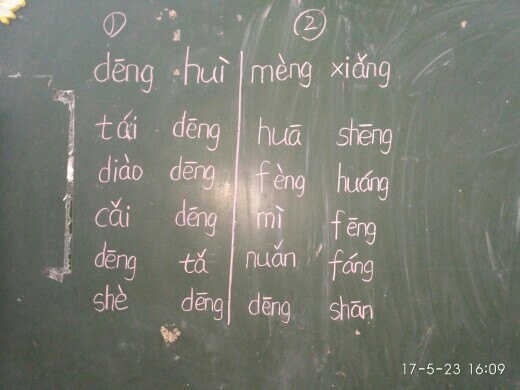 ① ②
dēng huì mèng xiǎng
tái dēng huā shēng
diào dēng fèng huáng
cǎi dēng mì fēng
dēng tǎ nuǎn fáng
shè dēng dēng shān
17-5-23 16:09